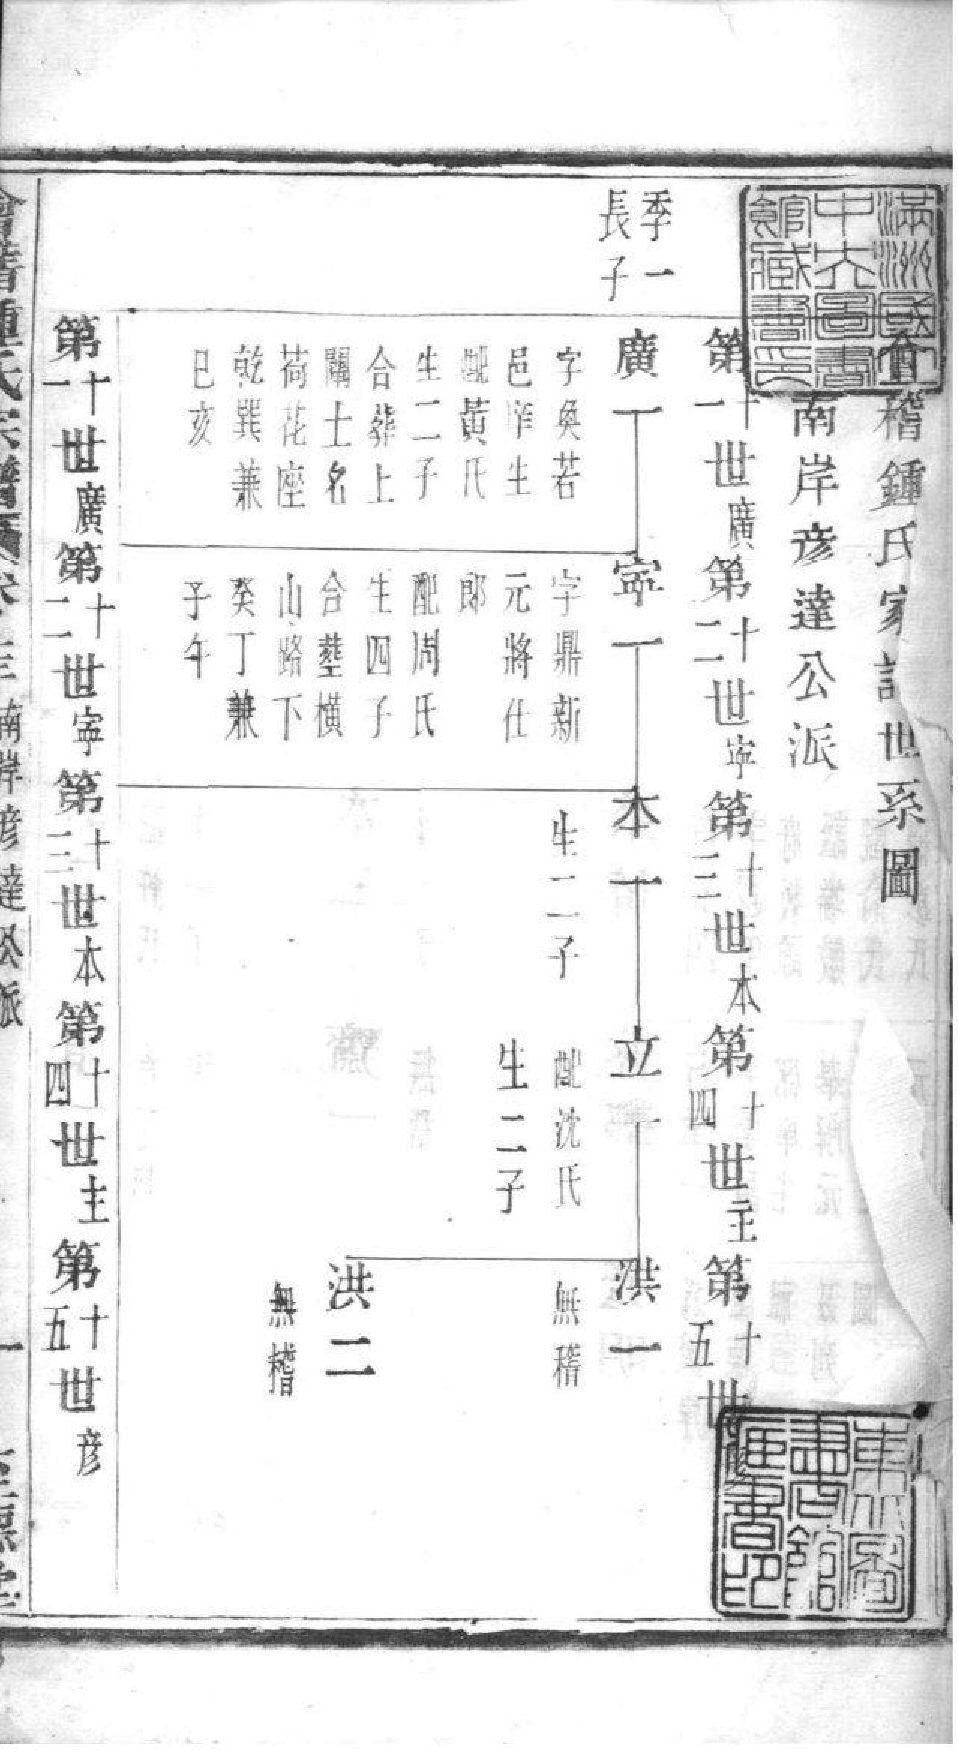 會稽鍾氏家譜世系圖
南岸彦達公派
第十一世廣第十二世寧第十三世本第十四世主第十五世彦
季一
長子
廣一
寧一
本一
立一
洪一
字奐若
邑庠生
配黃氏
生二子
合葬上
關土名
荷花座
乾巽兼
巳亥
字鼎新
元將仕
郎
配周氏
生四子
合塟橫
山路下
癸丁兼
子午
生二子
配沈氏
生二子
無稽
洪二
無稽
第十一世廣第十二世寧第十三世本第十四世主第十五世彦
會稽鍾氏宗譜 南岸彦達公派 一
滿洲國立
中央圖書
館藏書印